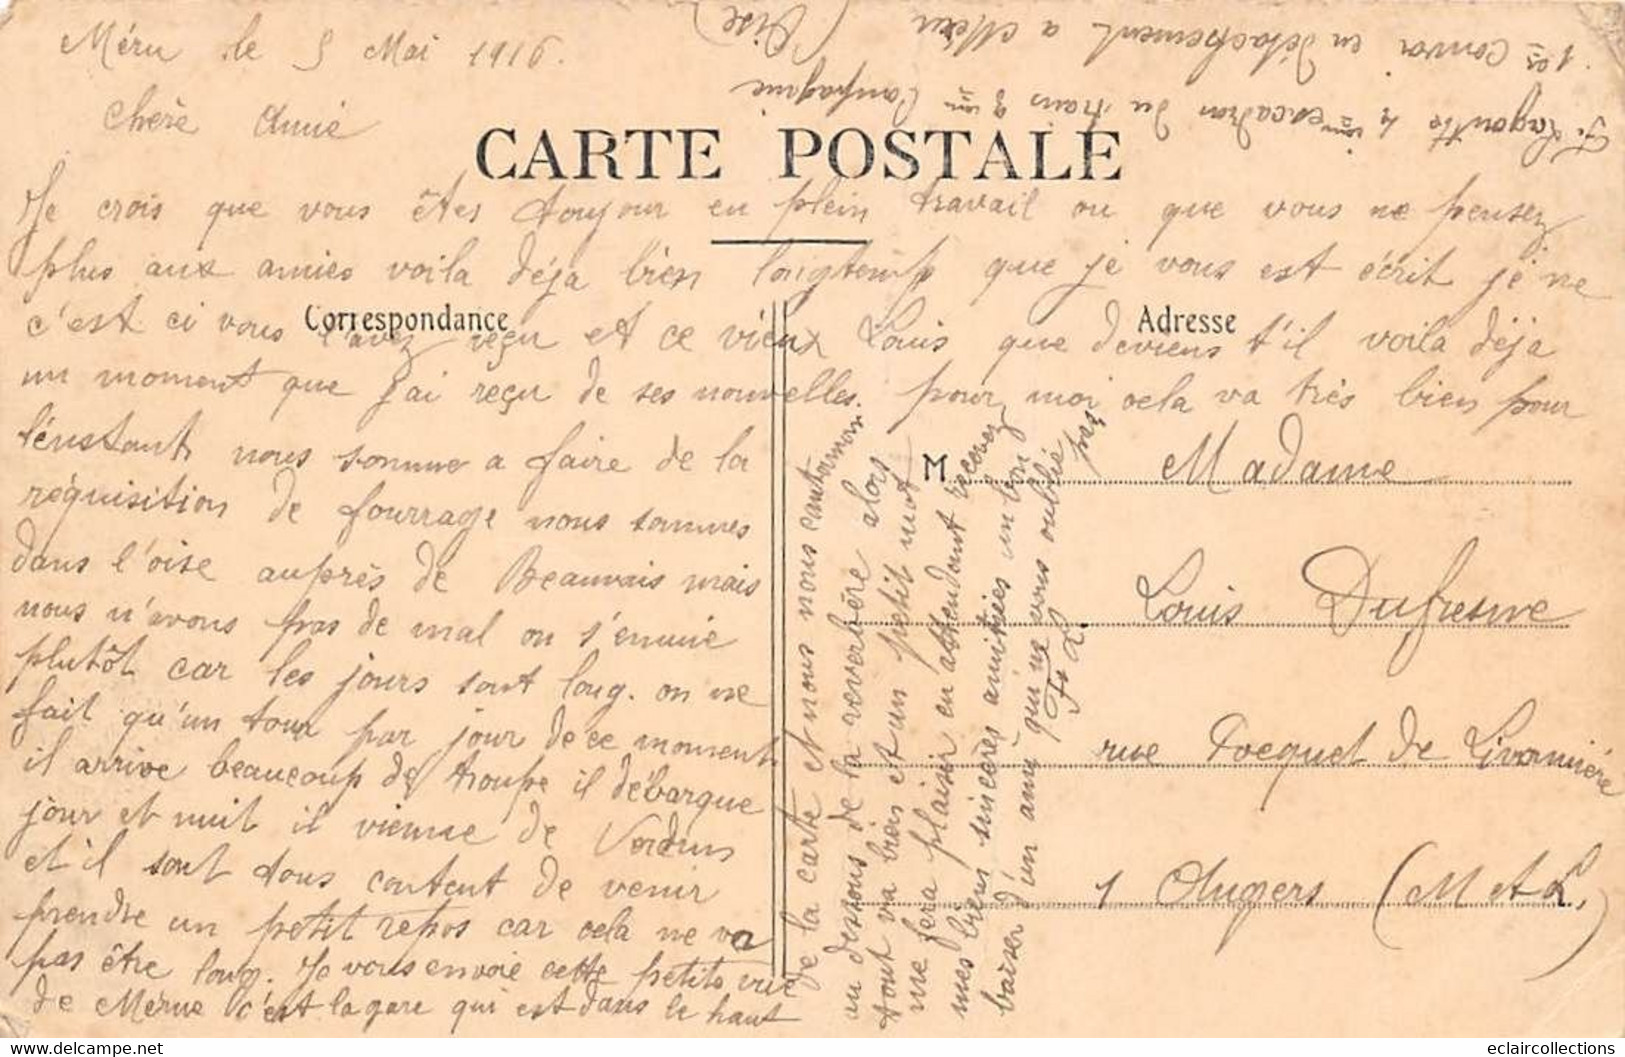 Méru le 5 Mai 1916.
Chère Amie
F. Lagoutte 4 ième escadron du train 9 ième Compagnie
1er convoi en détachement a Méru
(Oise)
CARTE POSTALE
Je crois que vous êtes toujour en plein travail ou que vous ne pensez
plus aux amies voila déja bien longtemp que je vous est écrit je ne
c'est ci vous l'avez reçu et ce vieux Louis que deviens t'il voila déja
Correspondance
Adresse
un moment que j'ai reçu de ses nouvelles. pour moi cela va très bien pour
l'énstant nous somme a faire de la
réquisition de fourrage nous sommes
dans l'oise auprès de Beauvais mais
nous n'avons pas de mal on s'ennuie
plutôt car les jours sont long. on ne
fait qu'un tour par jour de ce moment
il arrive beaucoup de troupe il débarque
jour et nuit il vienne de Verdun
et il sont tous content de venir
prendre un petit repos car cela ne va
pas être long. Je vous envoie cette petite vue
de Mérue c'est la gare qui est dans le haut
de la carte et nous nous cantonnons
au dessous de la reverbère alors
tout va bien et un petit mot
me fera plaisir en attendant recevez
mes bien sincères amitiées un bon
baiser d'un ami qui ne vous oublié pas
F. L.
M Madame
Louis Dufresne
rue Tocquet de Livonnière
1 Angers (M et L.)
eclaircollections
www.delcampe.net